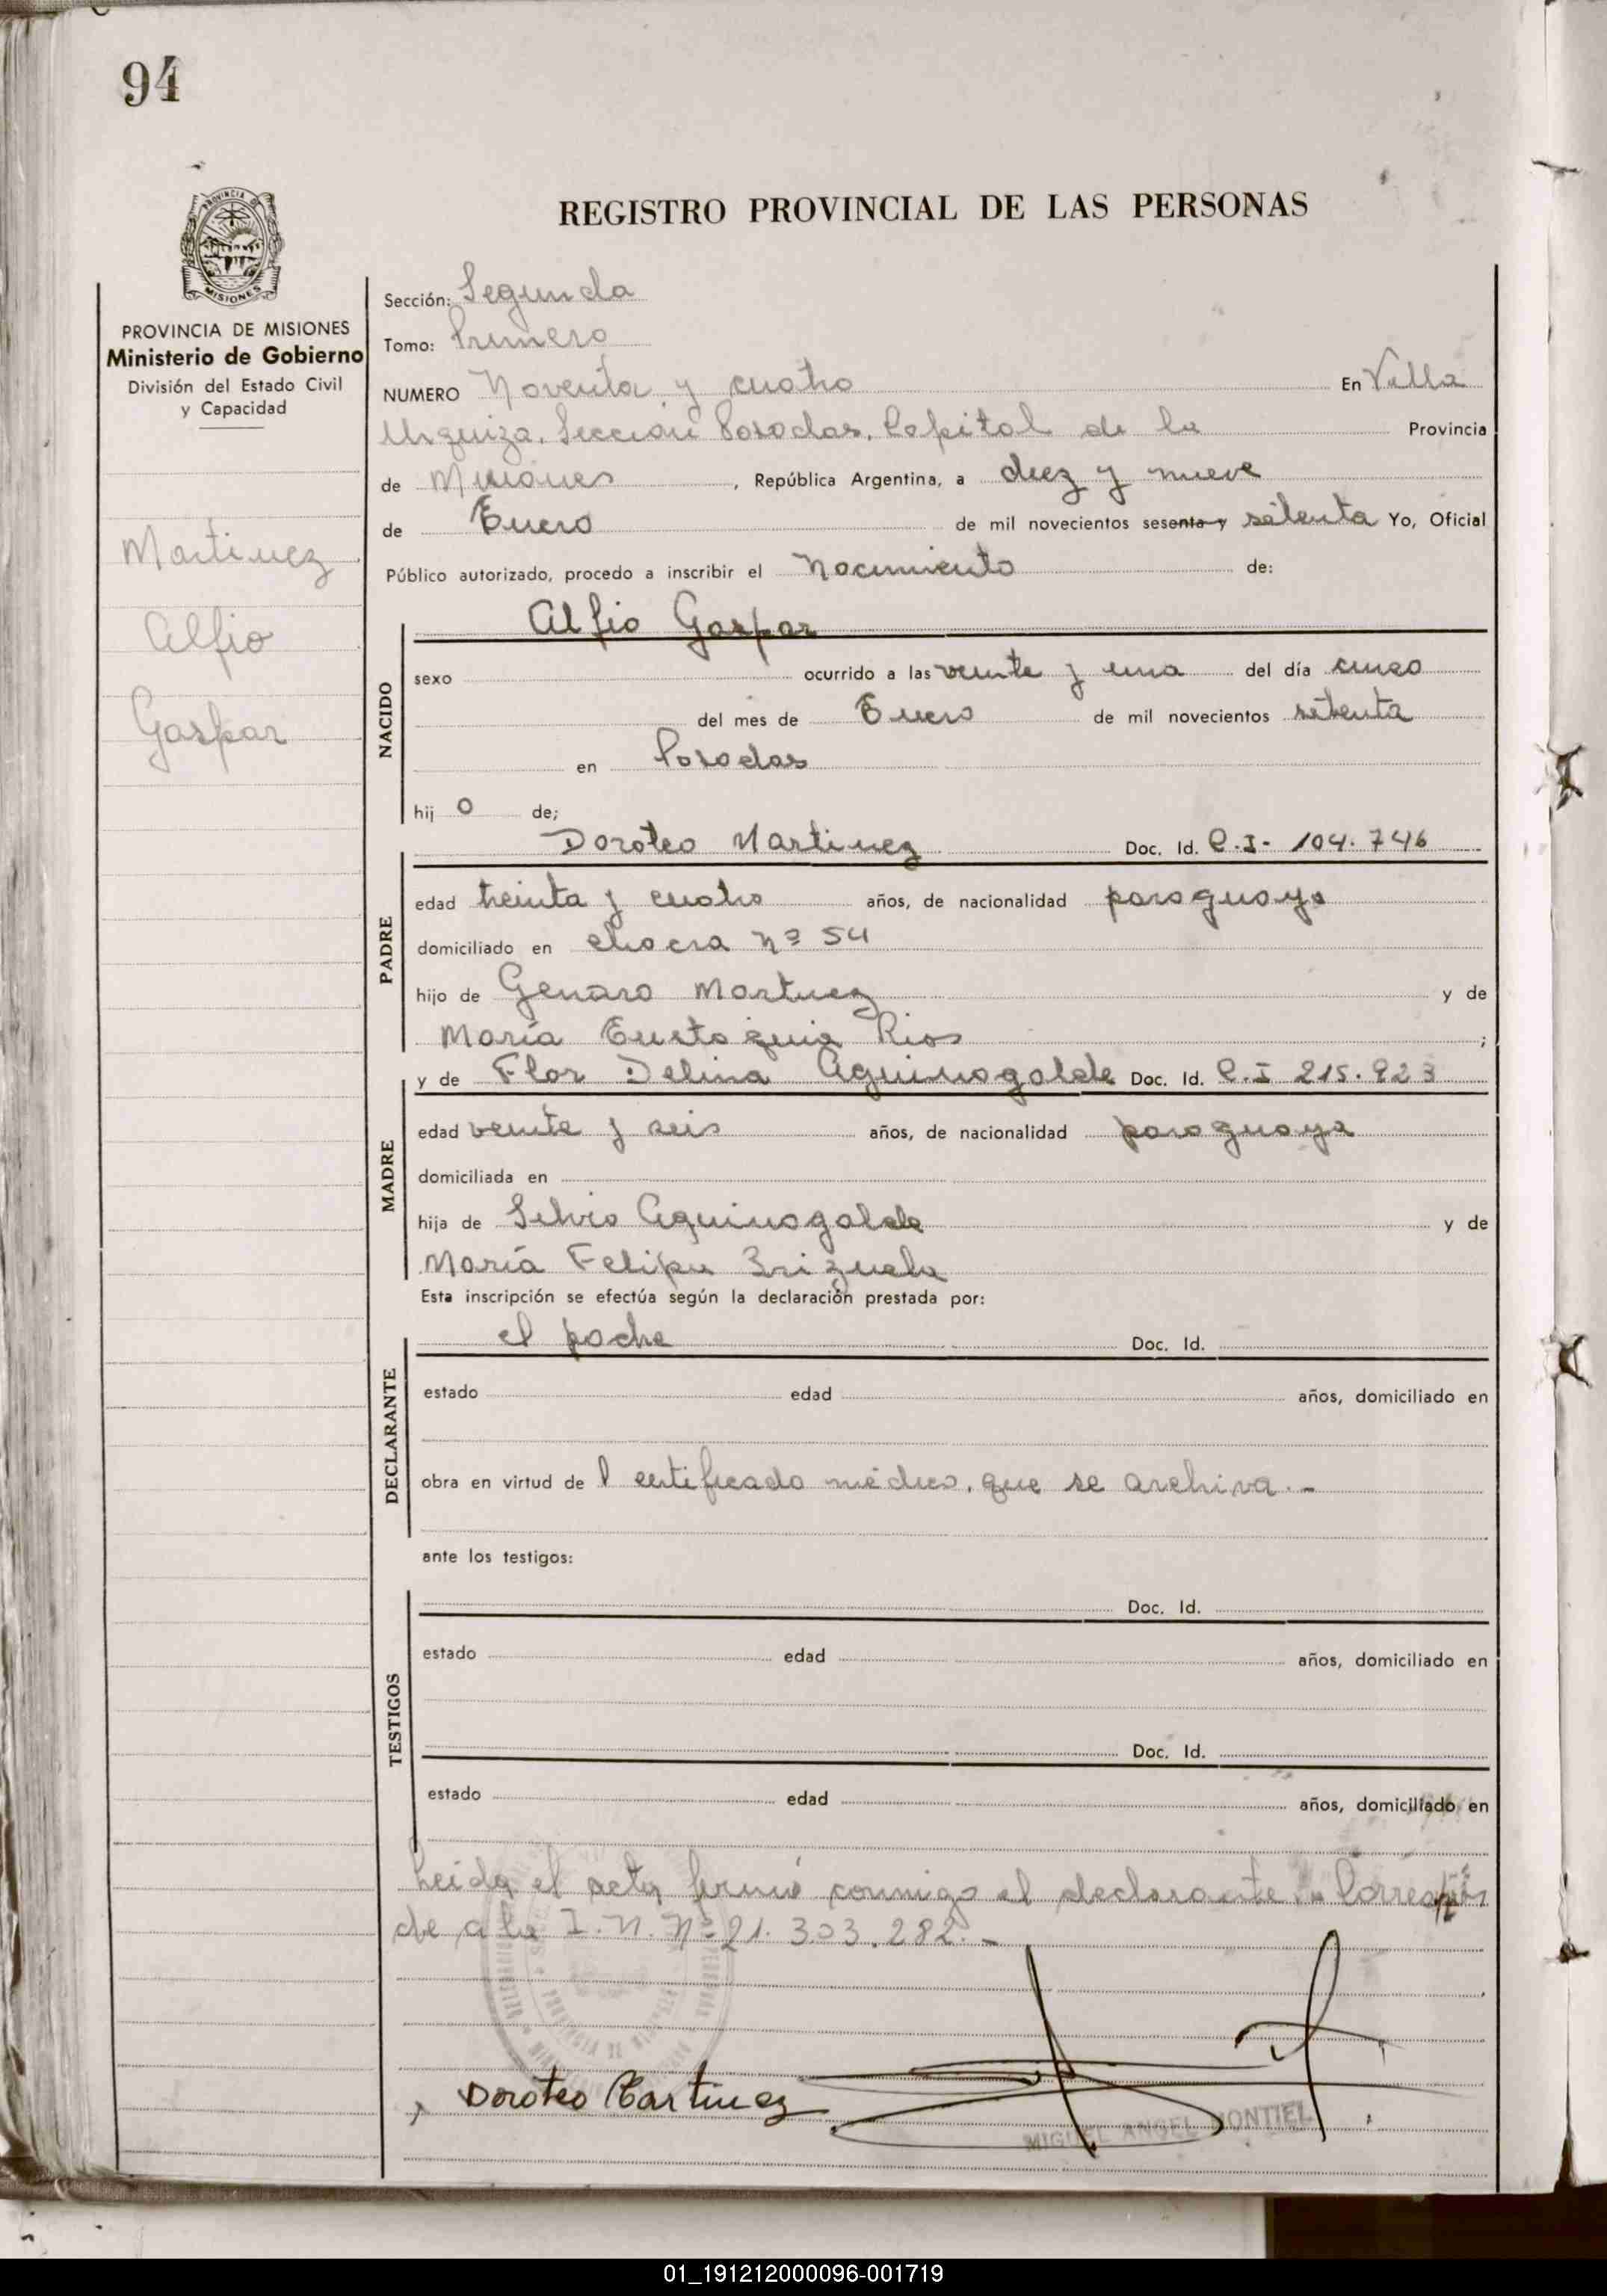 94
PROVINCIA DE
MISIONES
PROVINCIA DE MISIONES
Ministerio de Gobierno
División del Estado Civil
y Capacidad
Martinez
Alfio
Gaspar
REGISTRO PROVINCIAL DE LAS PERSONAS
Sección: Segunda
Tomo: Primero
NUMERO Noventa y cuatro En Villa
Urquiza. Sección Posadas, Capital de la Provincia
de Misiones, República Argentina, a diez y nueve
de Enero de mil novecientos sesenta y setenta Yo, Oficial
Público autorizado, procedo a inscribir el Nacimiento de:
NACIDO
Alfio Gaspar
sexo ocurrido a las veinte y una del día cinco
del mes de Enero de mil novecientos setenta
en Posadas
hij o de;
PADRE
Doroteo Martinez Doc. Id. C.I- 104.746
edad treinta y cuatro años, de nacionalidad paraguayo
domiciliado en chacra nº 54
hijo de Genaro Martinez y de
María Eustaquia Rios;
MADRE
y de Flor Delina Aguinagalde Doc. Id. C.I 215.923
edad veinte y seis años, de nacionalidad paraguaya
domiciliada en
hija de Silvio Aguinagalde y de
María Felipa Brizuela
Esta inscripción se efectúa según la declaración prestada por:
DECLARANTE
el padre Doc. Id.
estado edad años, domiciliado en
obra en virtud de l certificado médico, que se archiva.-
ante los testigos:
TESTIGOS
Doc. Id.
estado edad años, domiciliado en
Doc. Id.
estado edad años, domiciliado en
Leída el acta firmó conmigo el declarante.-
de a la I.N. Nº 21.303.282.-
Doroteo Martinez
MIGUEL ANGEL MONTIEL
01_191212000096-001719